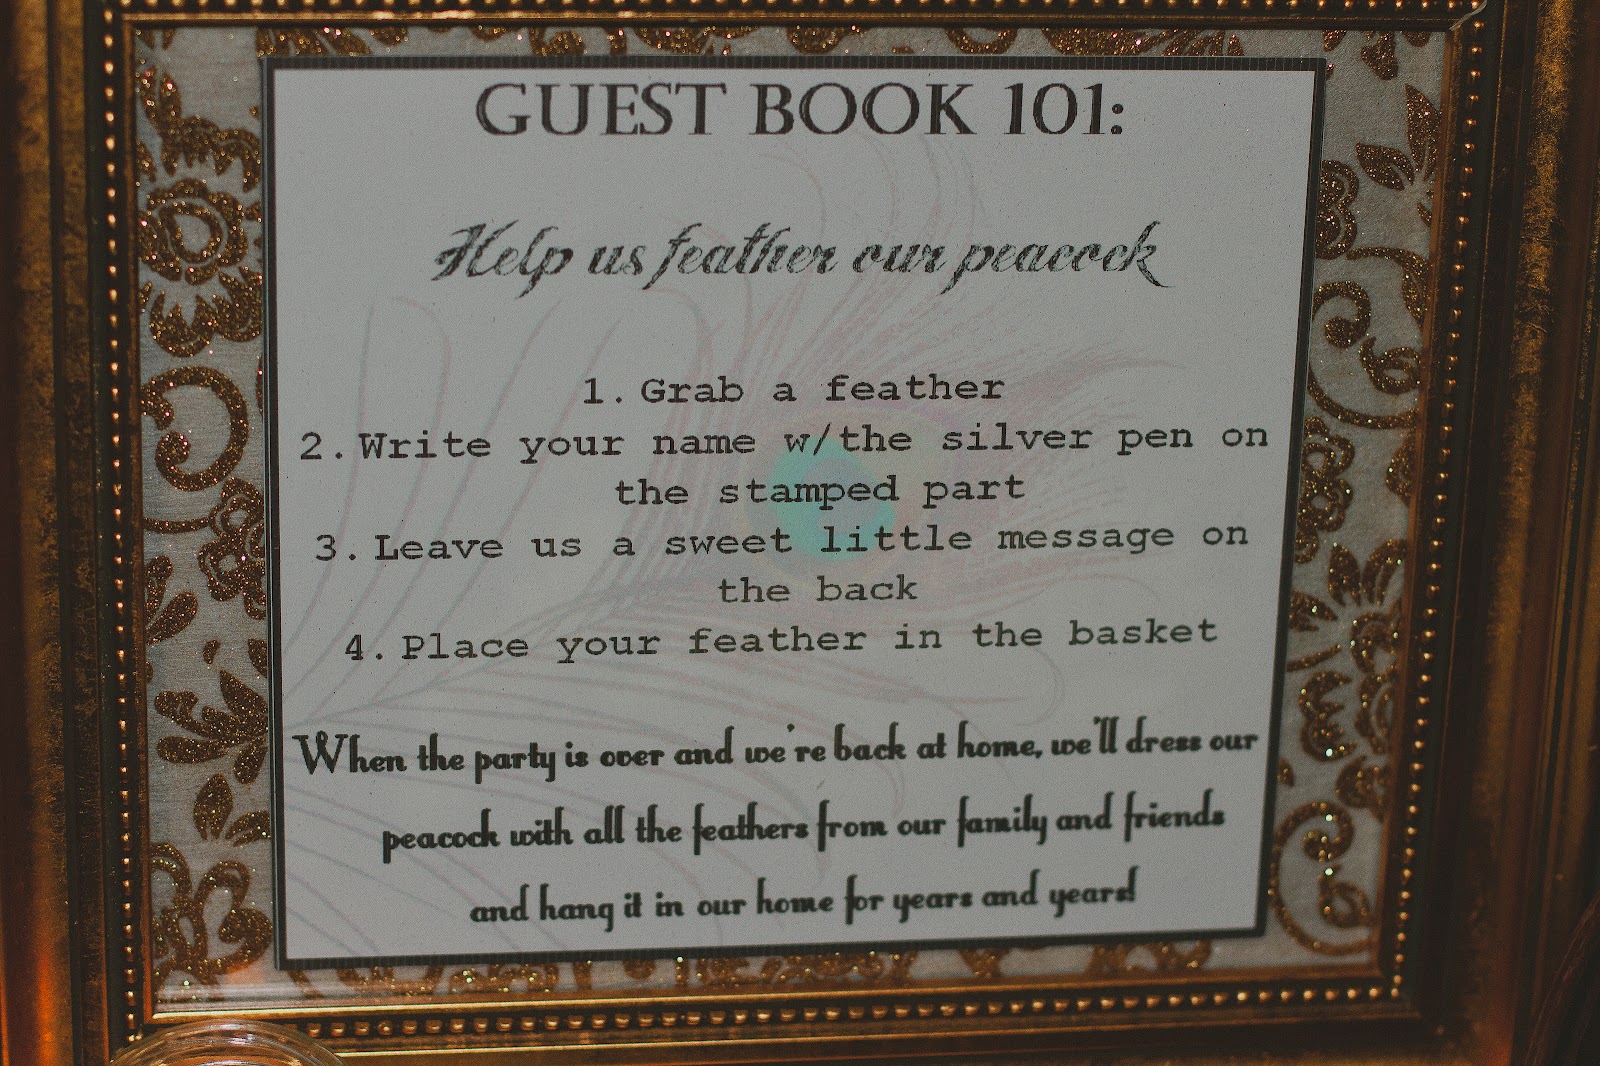 GUEST BOOK 101:
Help us feather our peacock
1. Grab a feather
2. Write your name w/the silver pen on
the stamped part
3. Leave us a sweet little message on
the back
4. Place your feather in the basket
When the party is over and we're back at home, we'll dress our
peacock with all the feathers from our family and friends
and hang it in our home for years and years!